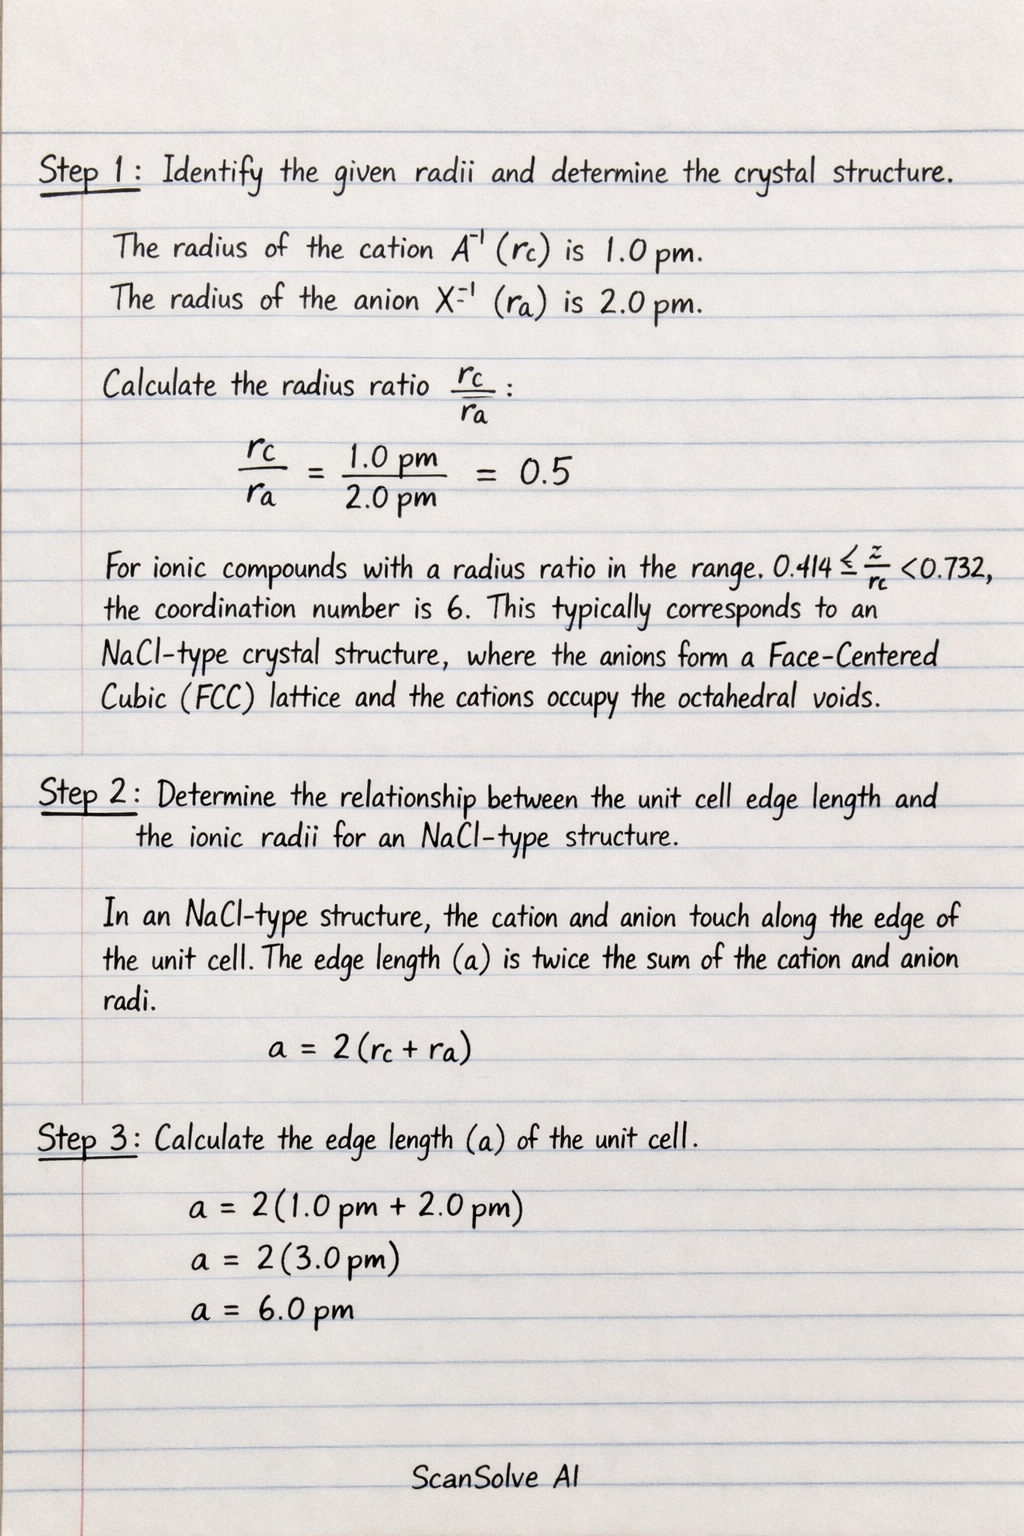 Step 1: Identify the given radii and determine the crystal structure.
The radius of the cation A⁻¹ (rc) is 1.0 pm.
The radius of the anion X⁻¹ (ra) is 2.0 pm.
Calculate the radius ratio rc/ra :
rc/ra = 1.0 pm/2.0 pm = 0.5
For ionic compounds with a radius ratio in the range. 0.414 ≤ z/rc < 0.732,
the coordination number is 6. This typically corresponds to an
NaCl-type crystal structure, where the anions form a Face-Centered
Cubic (FCC) lattice and the cations occupy the octahedral voids.
Step 2: Determine the relationship between the unit cell edge length and
the ionic radii for an NaCl-type structure.
In an NaCl-type structure, the cation and anion touch along the edge of
the unit cell. The edge length (a) is twice the sum of the cation and anion
radi.
a = 2(rc + ra)
Step 3: Calculate the edge length (a) of the unit cell.
a = 2(1.0 pm + 2.0 pm)
a = 2(3.0 pm)
a = 6.0 pm
ScanSolve AI